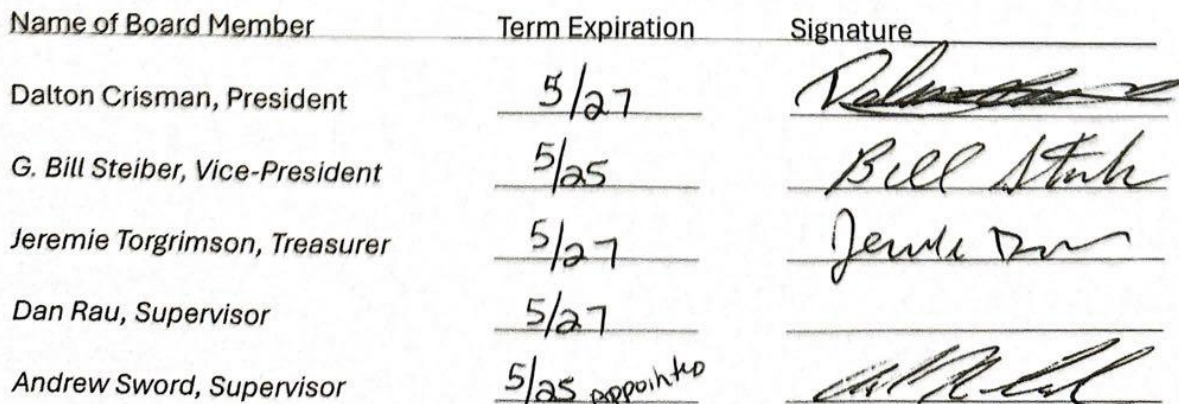 Name of Board Member Term Expiration Signature
Dalton Crisman, President 5/27
G. Bill Steiber, Vice-President 5/25 Bill
Jeremie Torgrimson, Treasurer 5/27
Dan Rau, Supervisor 5/27
Andrew Sword, Supervisor 5/25 appointed